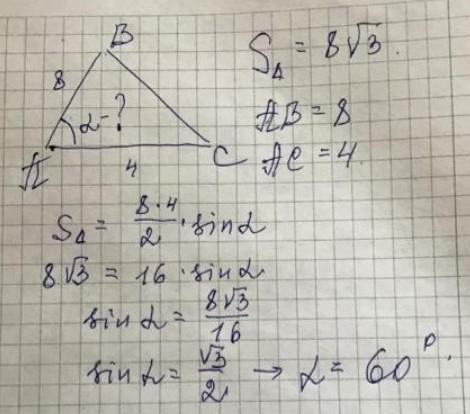 B
S_Δ = 8√3.
8
α - ?
AB = 8
A
4
C
AC = 4.
S_Δ = \frac{8·4}{2} · sin α
8√3 = 16 · sin α
sin α = \frac{8√3}{16}
sin α = \frac{√3}{2} → α = 60°.